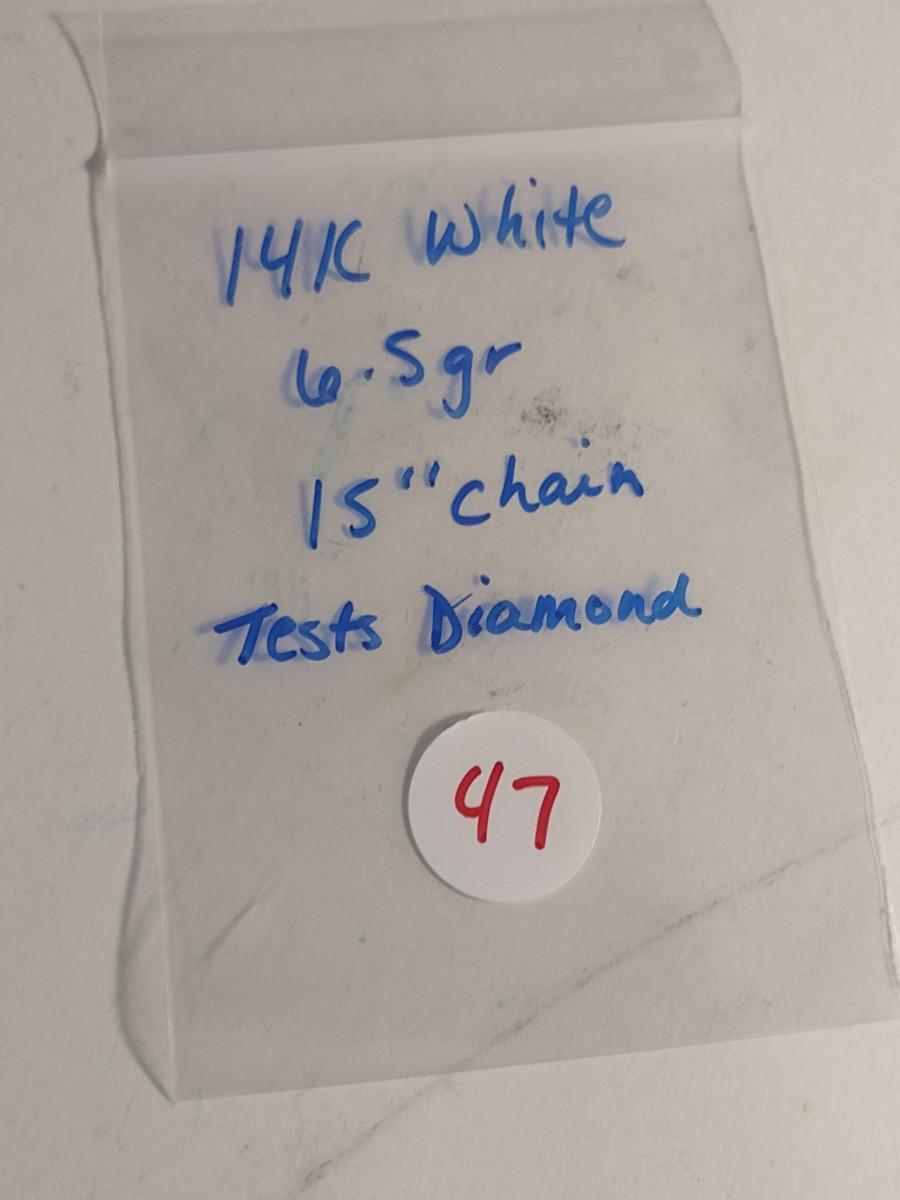 14K White
6.5gr
15" chain
Tests Diamond
47